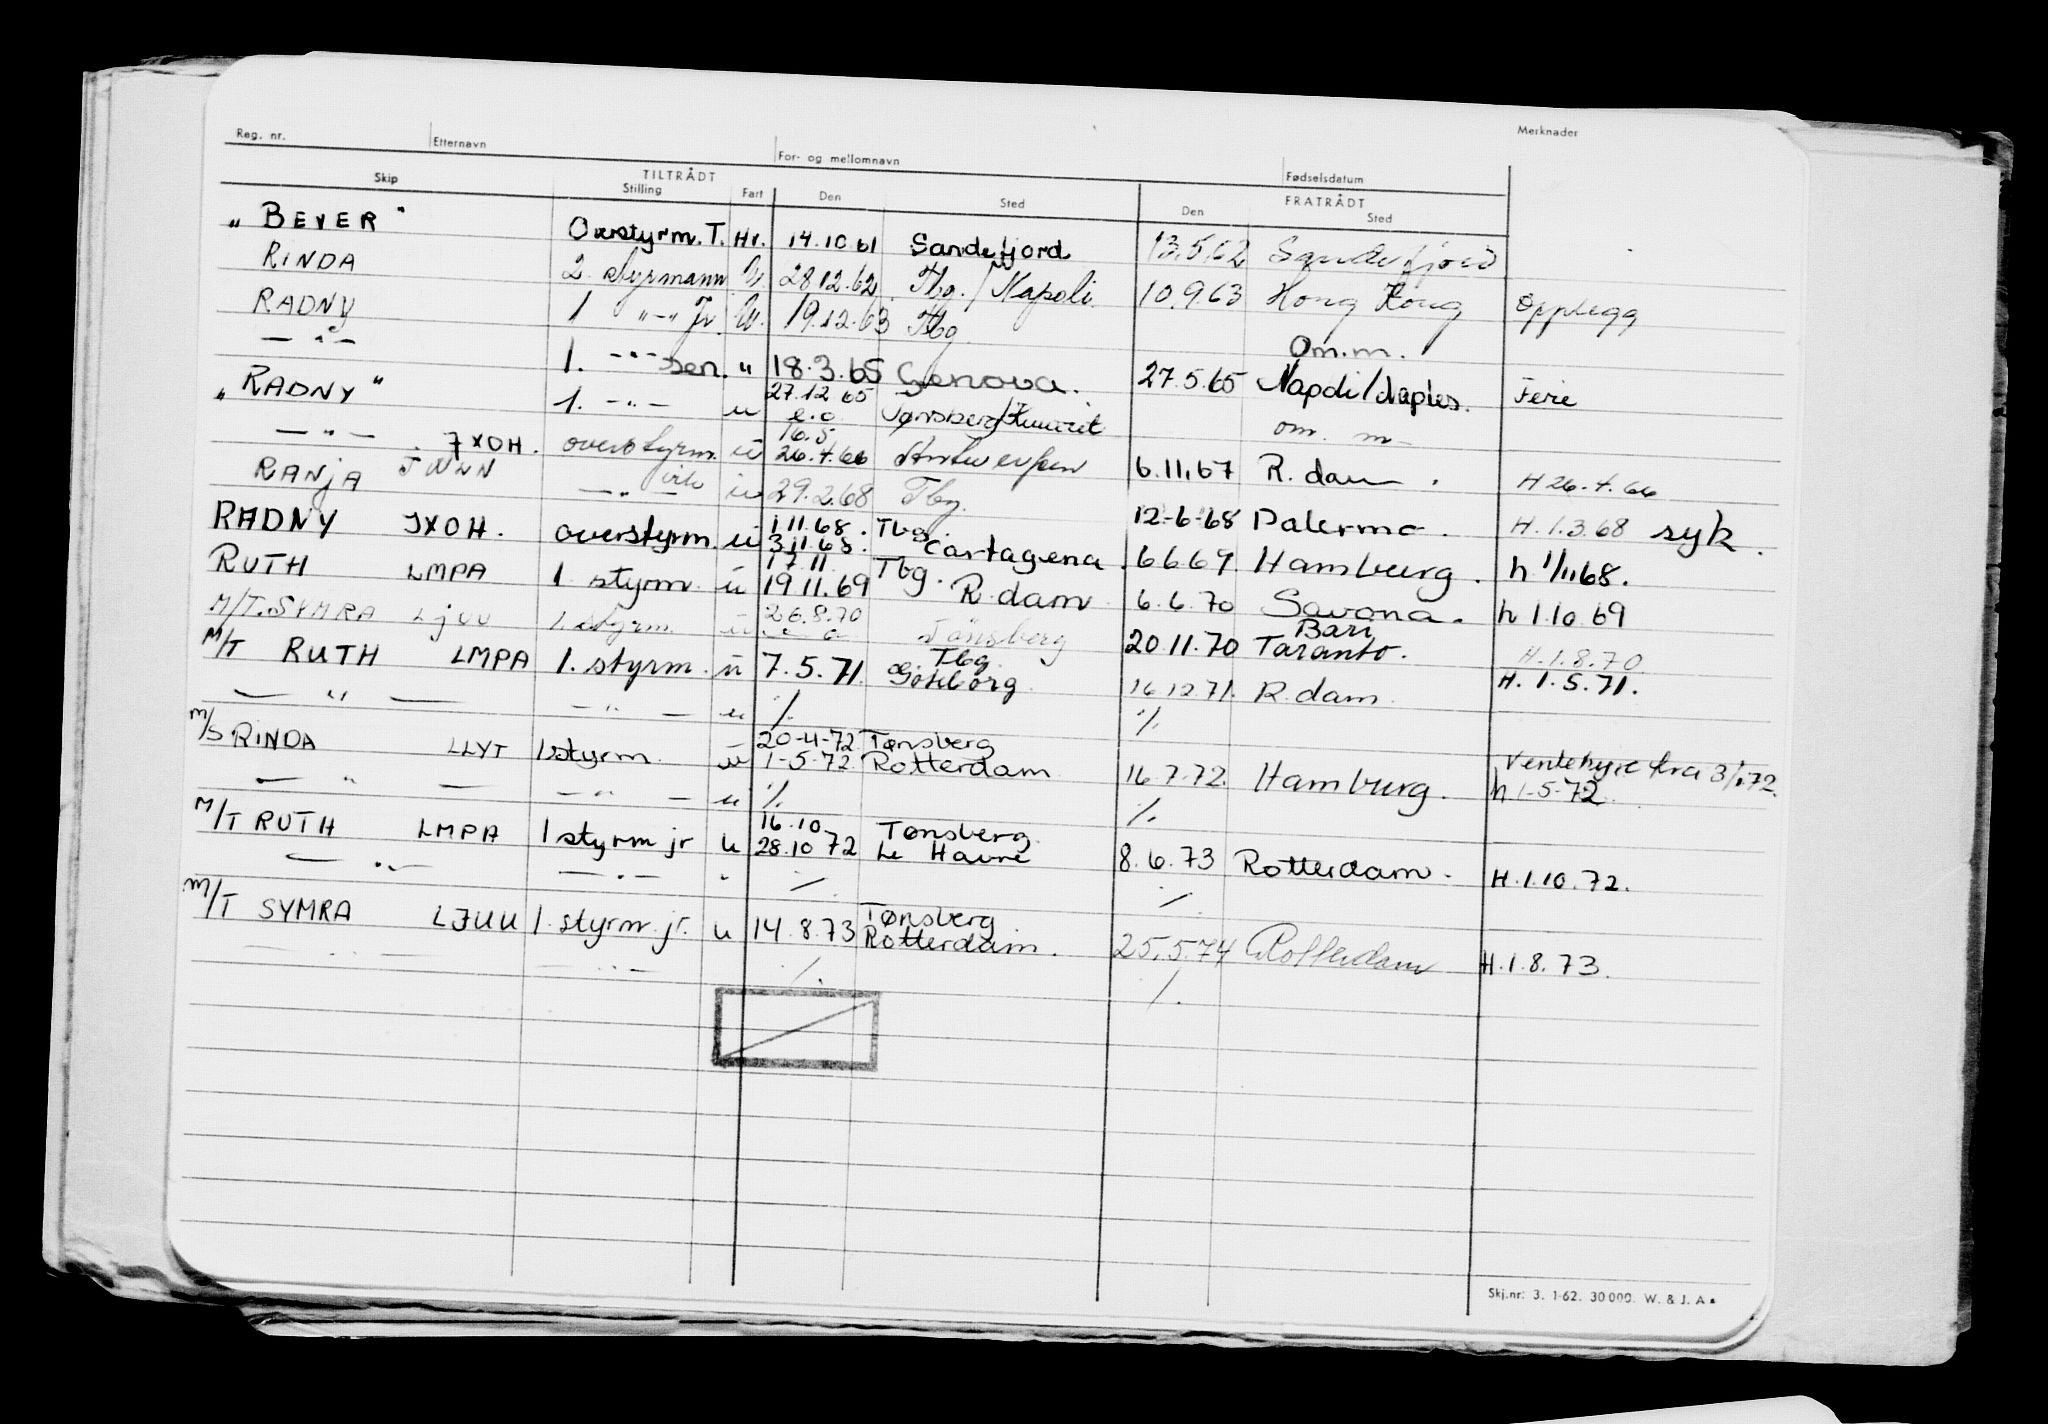 Reg. nr. Etternavn For- og mellomnavn Fødselsdatum Merknader
Skip TILTRÅDT FRATRÅDT
Stilling Fart Den Sted Den Sted
„ BEVER " Overstyrm. T. Hv. 14.10.61 Sandefjord 13.5.62 Sandefjord
RINDA 2. styrmann U. 28.12.62 Tbg. / Napoli 10.9.63 Hong Kong Opplegg
RADNY 1 -"- Jr. U. 19.12.63 Tbg.
— " — 1. -"- sen. " 18.3.65 Genova. 27.5.65 Om.m. Napoli/Naples. Ferie
„ RADNY " 1. -"- u 27.12.65 Tønsberg/ om. m-
— " — JXOH. overstyrm. u 16.5 26.4.66 Antwerpen 6.11.67 R.dam. H 26.4.66
RANJA JWWN — " — vik u 29.2.68 Tbg. 12-6-68 Palermo. H.1.3.68 syk.
RADNY JXOH. overstyrm. u 1.11.68. Tbg. 3.11.68. Cartagena. 6.6.69 Hamburg. h 1/11 68.
RUTH LMPA 1. styrm. u 17.11 19.11.69 Tbg. R.dam 6.6.70 Savona. h 1.10.69
M/T. SYMRA LJUU 1. styrm. u 26.8.70 Tönsberg 20.11.70 Bari Taranto. H.1.8.70
M/T RUTH LMPA 1. styrm. u 7.5.71. Tbg. Göteborg. 16.12.71. R.dam. H. 1.5.71.
— " — — " — u % %
M/S RINDA LLYT 1 styrm. u 20-4-72 Tønsberg 1-5-72 Rotterdam 16.7.72. Hamburg. Ventehyre fra 3/ 72. h 1-5-72.
— " — — " — u % %
M/T RUTH LMPA 1 styrm jr u 16.10 28.10 72 Tønsberg. Le Havre 8.6.73 Rotterdam. H.1.10.72.
— " — — " — " % %
M/T SYMRA LJUU 1. styrm. jr. u 14.8.73 Tønsberg Rotterdam. 25.5.74 Rotterdam H.1.8.73.
— " — — " — % %
Skj.nr: 3. 1-62. 30 000. W. & J. A